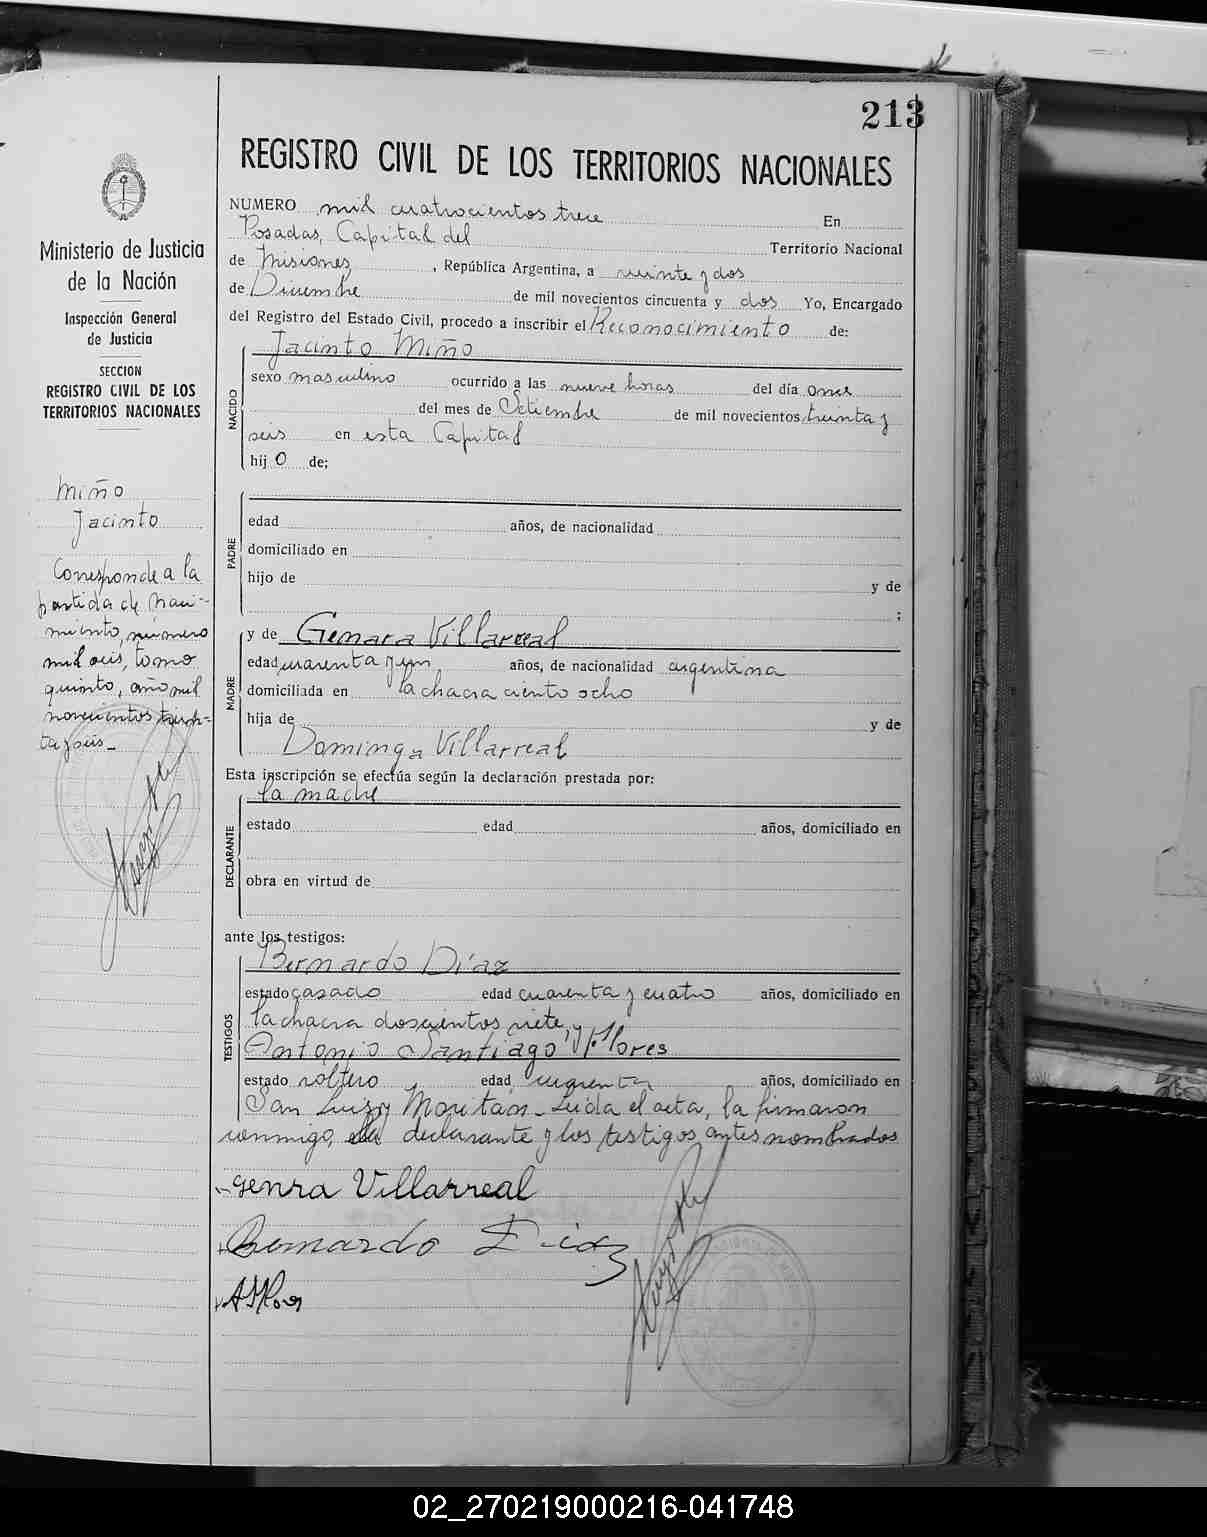 213
REGISTRO CIVIL DE LOS TERRITORIOS NACIONALES
Ministerio de Justicia
de la Nación
Inspección General
de Justicia
SECCION
REGISTRO CIVIL DE LOS
TERRITORIOS NACIONALES
Miño
Jacinto
Corresponde a la
partida de naci-
miento, número
mil seis, tomo
quinto, año mil
novecientos trein-
ta y seis_
NUMERO mil cuatrocientos trece En
Posadas, Capital del Territorio Nacional
de Misiones, República Argentina, a veinte y dos
de Diciembre de mil novecientos cincuenta y dos Yo, Encargado
del Registro del Estado Civil, procedo a inscribir el Reconocimiento de:
Jacinto Miño
NACIDO
sexo masculino ocurrido a las nueve horas del día once
del mes de Setiembre de mil novecientos treinta y
seis en esta Capital
hijo de;
PADRE
edad años, de nacionalidad
domiciliado en
hijo de y de
;
MADRE
y de Genara Villarreal
edad cuarenta y un años, de nacionalidad argentina
domiciliada en la chacra ciento ocho
hija de y de
Dominga Villarreal
Esta inscripción se efectúa según la declaración prestada por:
la madre
DECLARANTE
estado edad años, domiciliado en
obra en virtud de
ante los testigos:
Bernardo Díaz
TESTIGOS
estado casado edad cuarenta y cuatro años, domiciliado en
la chacra doscientos siete, y
Antonio Santiago Flores
estado soltero edad cuarenta años, domiciliado en
San Luis y Moritán_ Leída el acta, la firmaron
conmigo, la declarante y los testigos antes nombrados
genra Villarreal
Bernardo Diaz
02_270219000216-041748